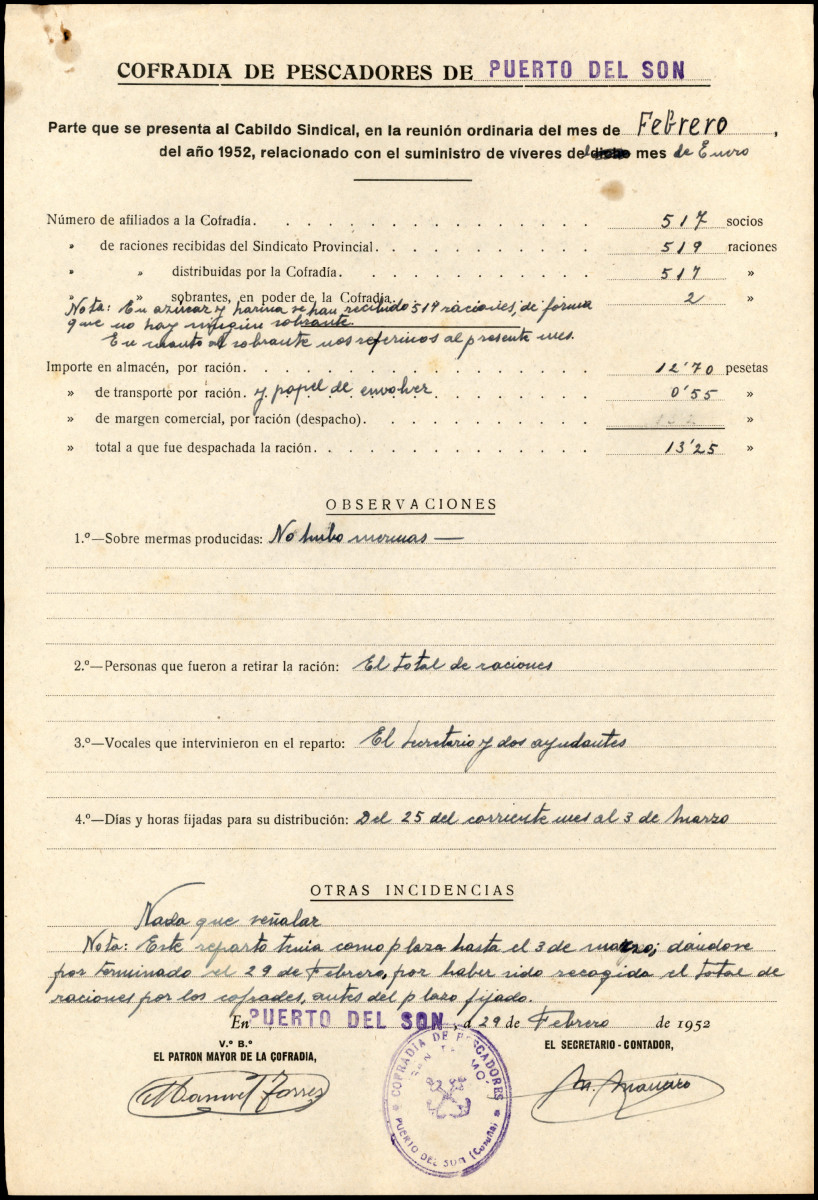 COFRADIA DE PESCADORES DE PUERTO DEL SON
Parte que se presenta al Cabildo Sindical, en la reunión ordinaria del mes de Febrero,
del año 1952, relacionado con el suministro de víveres del mes de Enero
Número de afiliados a la Cofradía. 517 socios
» de raciones recibidas del Sindicato Provincial. 519 raciones
» » distribuidas por la Cofradía. 517 »
» » sobrantes, en poder de la Cofradía. 2 »
Nota: En azúcar y harina se han recibido 517 raciones, de forma
que no hay ningún sobrante.
En cuanto al sobrante nos referimos al presente mes.
Importe en almacén, por ración. 12'70 pesetas
» de transporte por ración. y papel de envolver 0'55 »
» de margen comercial, por ración (despacho). »
» total a que fue despachada la ración. 13'25 »
OBSERVACIONES
1.º—Sobre mermas producidas: No hubo mermas —
2.º—Personas que fueron a retirar la ración: El total de raciones
3.º—Vocales que intervinieron en el reparto: El Secretario y dos ayudantes
4.º—Días y horas fijadas para su distribución: Del 25 del corriente mes al 3 de Marzo
OTRAS INCIDENCIAS
Nada que señalar
Nota: Este reparto tenia como plazo hasta el 3 de marzo; dándose
por terminado el 29 de Febrero, por haber sido recogida el total de
raciones por los cofrades, antes del plazo fijado.
En PUERTO DEL SON, a 29 de Febrero de 1952
V.º B.º
EL PATRON MAYOR DE LA COFRADIA,
EL SECRETARIO - CONTADOR,
Manuel Torres
COFRADIA DE PESCADORES
SAN TELMO
PUERTO DEL SON (Coruña)